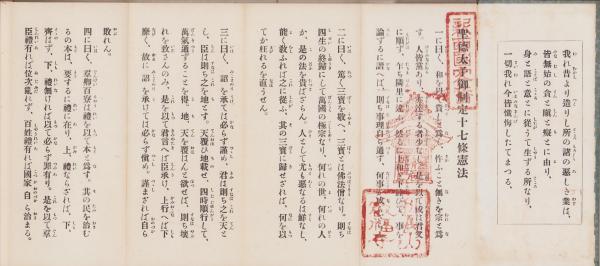 我れ昔より造りし所の諸の惡しき業は、
皆無始の貪と瞋と癡とに由り、
身と語と意とに從うて生ずる所なり、
一切我れ今皆懺悔したてまつる。
聖德太子御制定十七條憲法
一に曰く、和を以て貴しと爲し、忤ふこと無きを宗と爲
す。人皆黨あり、亦達する者少なし。是を以て或は君父
に順ず、乍た隣里に違ふ。然るに上和ぎ下睦びて、事を
論ずるに諧へば、則ち事理自ら通ず、何事か成
二に曰く、篤く三寶を敬へ、三寶とは佛法僧なり。則ち
四生の終歸にして萬國の極宗なり。何れの世、何れの人
か、是の法を貴ばざらん。人として尤も惡なるは鮮なし、
能く敎ふれば之に從ふ、其の三寶に歸せざれば、何を以
てか枉れるを直うせん。
三に曰く、詔を承けては必らず謹め、君は則ち之を天と
し、臣は則ち之を地とす。天覆ひ地載せ、四時順行して、
萬氣通ずることを得、地、天を覆はんと欲せば、則ち壞
れを致さんのみ。是を以て君言へば臣承け、上行へば下
靡く、故に詔を承けては必らず愼め。謹まざれば自ら
敗れん。
四に曰く、羣卿百寮は禮を以て本と爲す。其の民を治む
るの本は、要するに禮に在り、上、禮ならざれば、下、
齊はず、下、禮無ければ以て必らず罪有り。是を以て羣
臣禮有れば位次亂れず、百姓禮有れば國家自ら治まる。